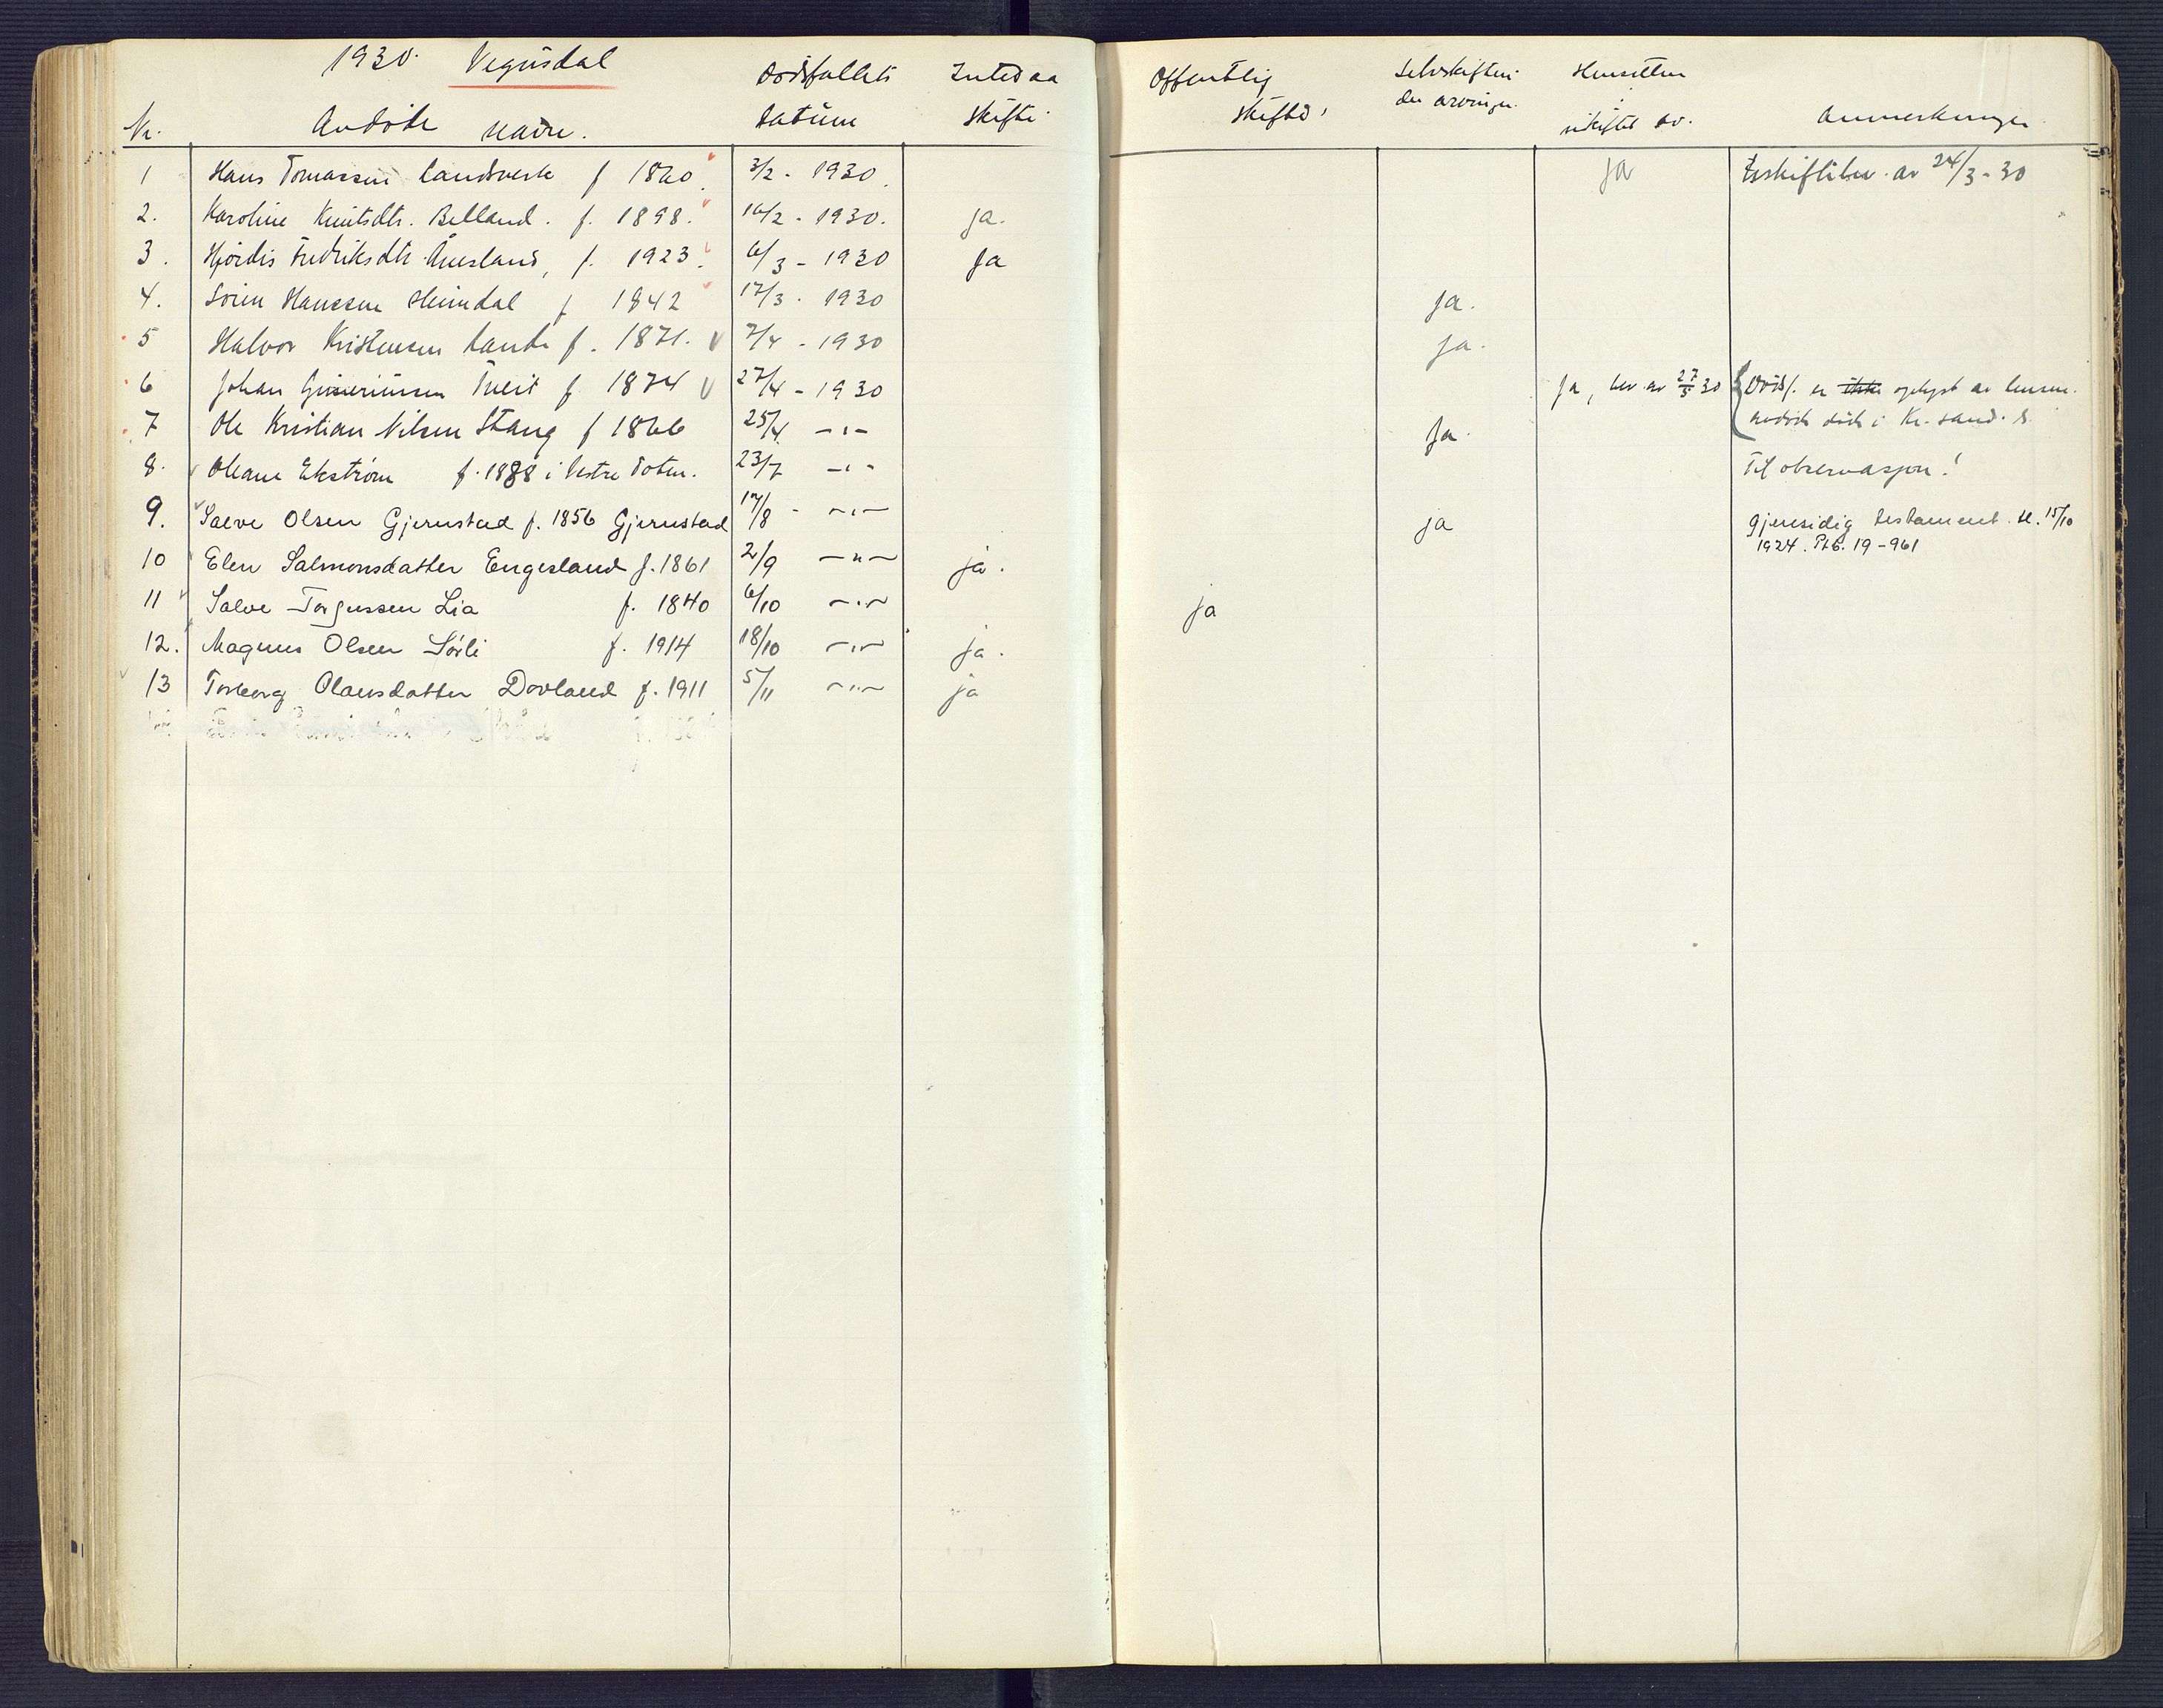 1930. Vegusdal
Nr. Avdöde navn. Dödsfallets datum Intet aa skifte. Offentlig skifte. Selvskiftende arvinger. Hensitten i uskiftet bo. Anmerkninger
1 Hans Tomassen Landverk f 1860. 3/2 - 1930. ja Uskiftebev. av 24/3 - 30
2. Karoline Knutsdtr. Belland. f. 1898. 16/2 - 1930. ja.
3. Hjördis Fredriksdtr. f. 1923. 6/3 - 1930 ja
4. Sören Hanssen Heimdal f 1842 17/3 - 1930 ja.
5 Halvor Kristensen Lande f. 1871. 7/4 - 1930 ja.
6 Johan Tveit f 1874 27/4 - 1930 ja, bev. av 27/5 30 Dödsf. er ikke oplyst av lensm.
död i Kr.sand. S.
7 Ole Kristian Nilsen Stang f 1866 25/4 -"- ja.
8. Oleane Ekström f. 1888 i Vestre Toten. 23/7 -"- Til observasjon!
9. Salve Olsen Gjernstad f. 1856 Gjernstad 17/8 - -"- ja gjensidig testament. tl. 15/10
1924. Ptb. 19 - 961
10 Elen Salmonsdatter Engesland f. 1861 2/9 -"- ja.
11 Salve Torjussen Lia f. 1840 6/10 -"- ja
12. Magnus Olsen Sörli f. 1914 18/10 -"- ja.
13 Torborg Olausdatter Dovland f. 1911 5/11 -"- ja